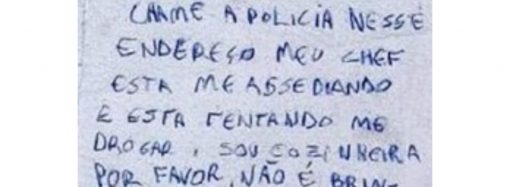 CHAME A POLICIA NESSE
ENDEREÇO MEU CHEF
ESTA ME ASSEDIANDO
E ESTA TENTANDO ME
DROGAR, SOU COZINHEIRA
POR FAVOR, NÃO É BRIN-